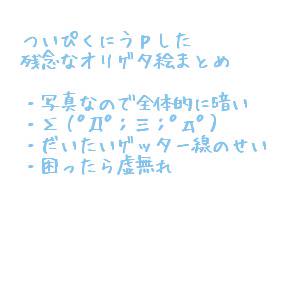 ついぴくにうpした
残念なオリゲタ絵まとめ
・写真なので全体的に暗い
・Σ(ﾟДﾟ;三;ﾟдﾟ)
・だいたいゲッター線のせい
・困ったら虚無れ